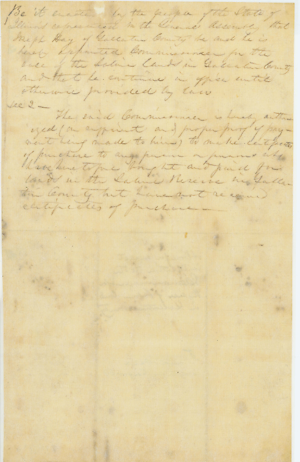 Be it enacted by the people of the State of
Illinois represented in the General Assembly, that
Day of Gallatin County be and he is
hereby appointed Commissioner for the
sale of the Saline Lands in Gallatin County
and that he continue in office until
otherwise provided by law
Sec 2 - The said Commissioner is hereby author
ized (on sufficient and proper proof of pay
ment being made to him) to make certificates
of purchase to any person or persons who
have bought and paid for
lands in the Saline Reserve in Gallatin
County but have not received
certificates of purchase -